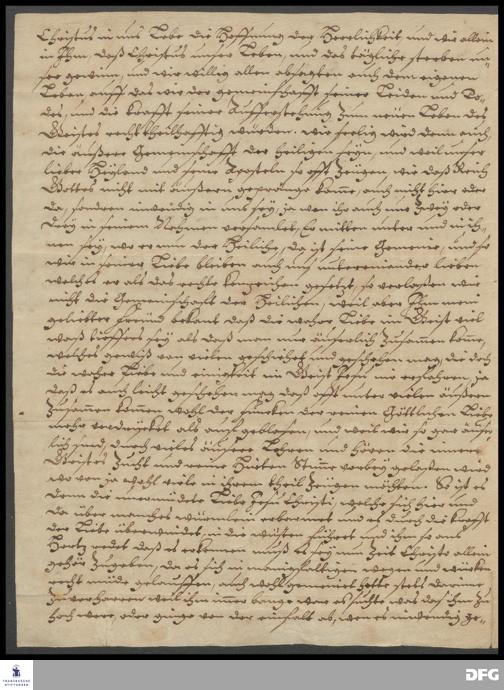 Christus in uns Lebe die Hoffnung der Herrlichkeit, und wir allein
in Ihm, daß Christus unser Leben, und das tägliche sterben un-
ser gewinn, und wir willig allen absagten auch dem eigenen
Leben auff das wir der gemeinschafft seiner Leiden und To-
des, und die krafft seiner Aufferstehung zum neuen Leben des
Geistes recht theilhafftig würden. wie seelig wird dem auch
die äußere Gemeinschafft der heiligen seyn, und weil unser
lieber Heyland und seine Aposteln so offt zeigen, wie daß Reich
Gottes nicht mit äußern gepränge kome, auch nicht hier oder
da, sondern inwendig in uns sey, ja wen ihr auch nur zwey oder
drey in seinem Nahmen versamlet, Er mitten unter und in ih-
nen sey, wo er nun der Heilige, da ist seine Gemeine, und so
wir in seiner Liebe bleiben auch uns untereinander lieben
welches er als das rechte kenzeichen gesetzt, so verlaßen wir
nicht die Gemeinschaft der Heiligen, weil aber Ihm mein
geliebter Freund bekant daß die wahre Liebe im Geist viel
waß tieffers sey als daß man nur äußerlich zusammen kome,
welches gewiß von vielen geschiehet und geschehen mag, die doch
die wahre Liebe und einigkeit im Geist Jesu nie erfahren, ja
daß es auch leicht geschehen mag daß offt unter vielen äußern
zusammen komen wohl der funcken der reinen Göttlichen Liebe
mehr verdunckelt als auf geblasen, und weil wir so gar äußer-
lich sind, durch vieles äußere Lehren und hören die innere
Geistes Zucht und reine Hirten Stimme vorbey gelaßen wird
wo von ja wohl viele in ihrem theil zeugen möchten. So ist es
denn die unermüdete Liebe Jesu Christi, welche sich hier und
da über manches würmlein erbarmet und es durch die krafft
der Liebe überwindet, in die wüsten führet und ihm so ans
Hertz redet daß es erkennen muß es sey nun Zeit Christo allein
gehör zugeben, da es sich in manigfaltigen wegen und wircken
recht müde gelauffen, auch wohl gemeinet hette stets darinne
zu verharren weil ihm immer bange war es suchte was das ihm zu
hoch were, oder ginge von der einfalt ab, wen es inwendig ge-